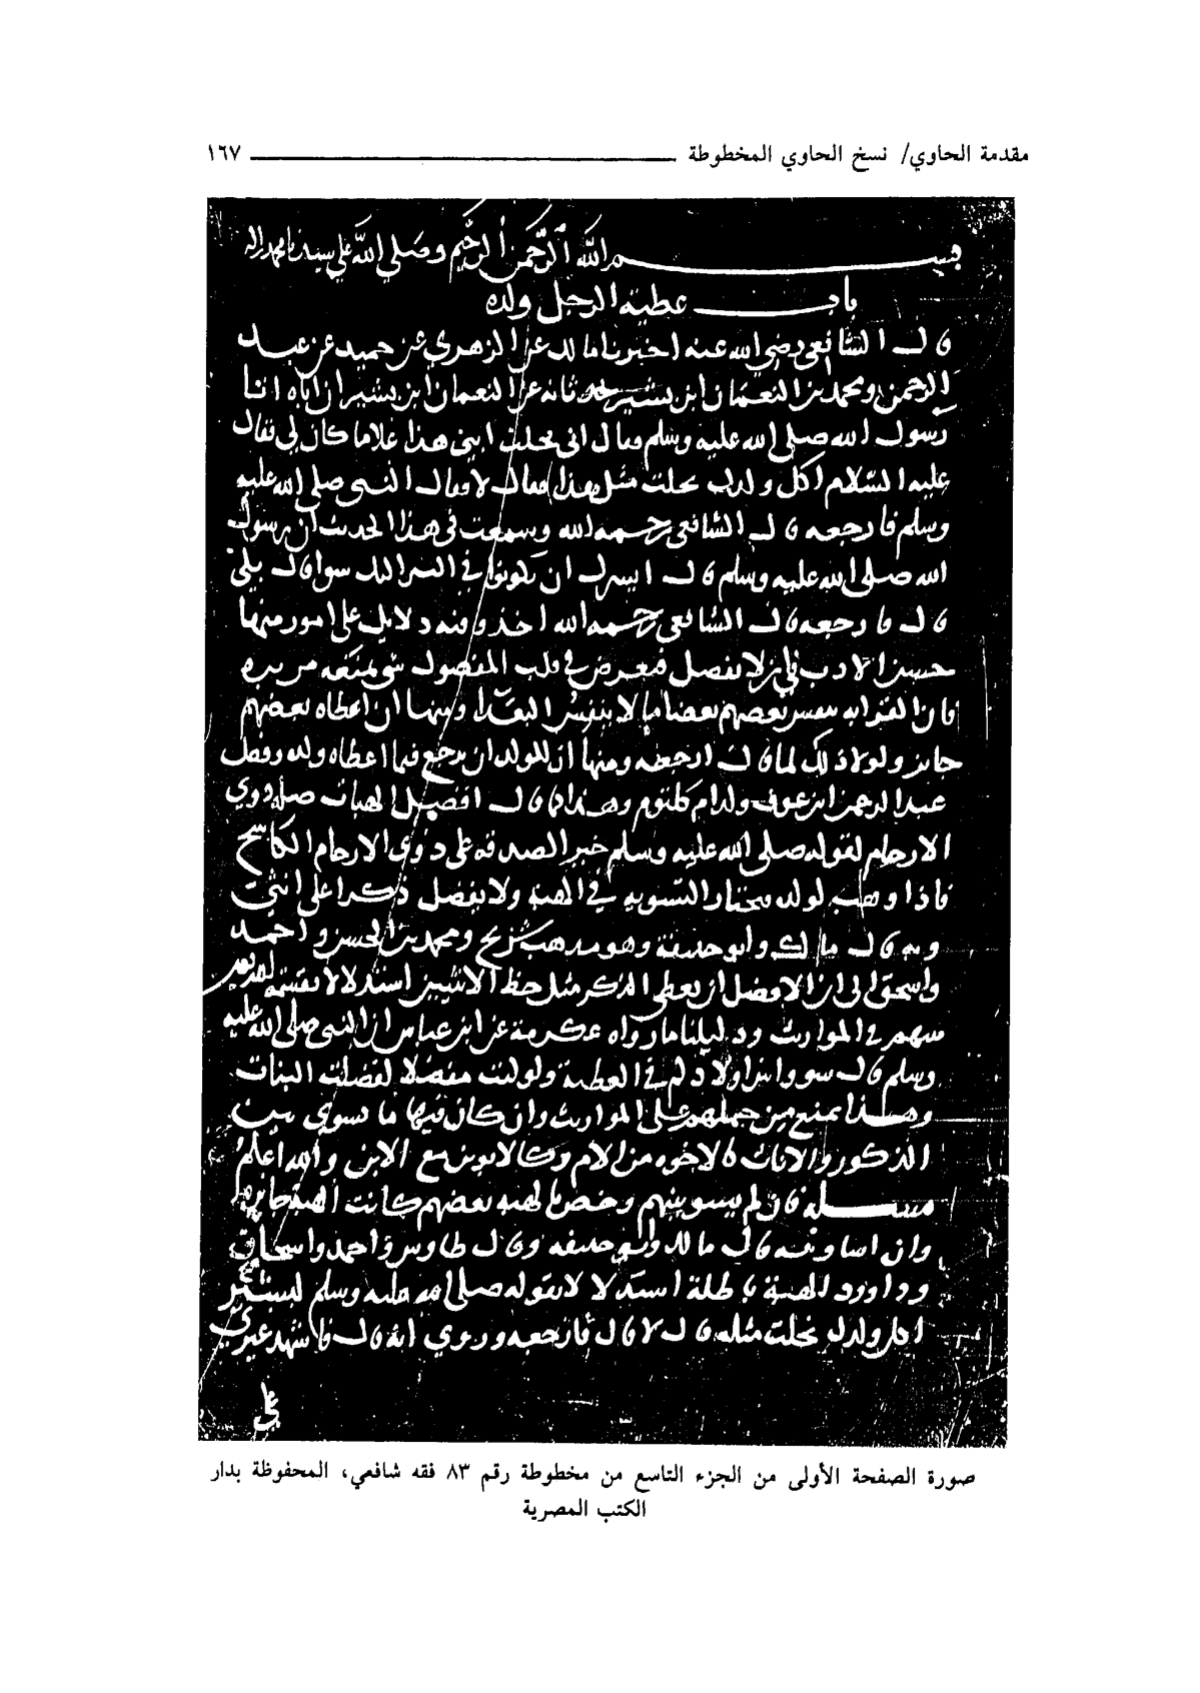 مقدمة الحاوي/ نسخ الحاوي المخطوطة ١٦٧
بسم الله الرحمن الرحيم وصلى الله على سيدنا محمد واله
باب عطية الرجل ولده
قال الشافعي رضي الله عنه اخبرنا مالك عن الزهري عن حميد بن عبد
الرحمن ومحمد بن النعمان ابن بشير يحدثانه عن النعمان ابن بشير ان اباه اتا
رسول الله صلى الله عليه وسلم فقال اني نحلت ابني هذا غلاما كان لي فقال
عليه السلام اكل ولدك نحلت مثل هذا فقال لا فقال النبي صلى الله عليه
وسلم فارجعه قال الشافعي رحمه الله وسمعت في هذا الحديث ان رسول
الله صلى الله عليه وسلم قال ايسرك ان يكونوا في البر اليك سوا قال بلى
قال فارجعه قال الشافعي رحمه الله اخذ وفيه دلايل على امور منها
حسن الادب في ان لا يفضل فيعرض في قلب المفضول شي يمنعه من بره
فان القرابه ينفس بعضهم بعضا ما لا ينفس البعدا ومنها ان اعطاه بعضهم
جايز ولولا ذلك لما قال ارجعه ومنها ان للوالد ان يرجع فيما اعطاه ولده وفضل
عبد الرحمن ابن عوف ولد ام كلثوم وهذا كما قال افضل الهبات صلة ذوي
الارحام لقوله صلى الله عليه وسلم خير الصدقه على ذوي الارحام الكاشح
فاذا وهب لولده فيختار التسويه في الهبه ولا يفضل ذكرا على انثى
وبه قال مالك وابو حنيفة وهو مذهب شريح ومحمد بن الحسن و احمد
واسحق الى ان الافضل ان يعطى الذكر مثل حظ الانثيين استدلالا بقسمة الله
سهم في المواريث ودليلنا ما رواه عكرمة عن ابن عباس ان النبي صلى الله عليه
وسلم قال سووا بين اولادكم في العطية ولو كنت مفضلا لفضلت البنات
وهذا يمنع من حملهم على المواريث وان كان فيها ما يسوى بين
الذكور والاناث كالاخوه من الام وكالابوين مع الابن والله اعلم
مسله فان لم يسو بينهم وخص بالهبه بعضهم كانت الهبة جايزة
وان اسا وبه قال مالك وابو حنيفه وقال طاوس واحمد واسحاق
وداوود الهبة باطلة استدلالا بقوله صلى الله عليه وسلم لبشير
اكل ولدك نحلت مثله قال لا قال فارجعه وروي انه قال فاشهد غيري
صورة الصفحة الأولى من الجزء التاسع من مخطوطة رقم ٨٣ فقه شافعي، المحفوظة بدار
الكتب المصرية